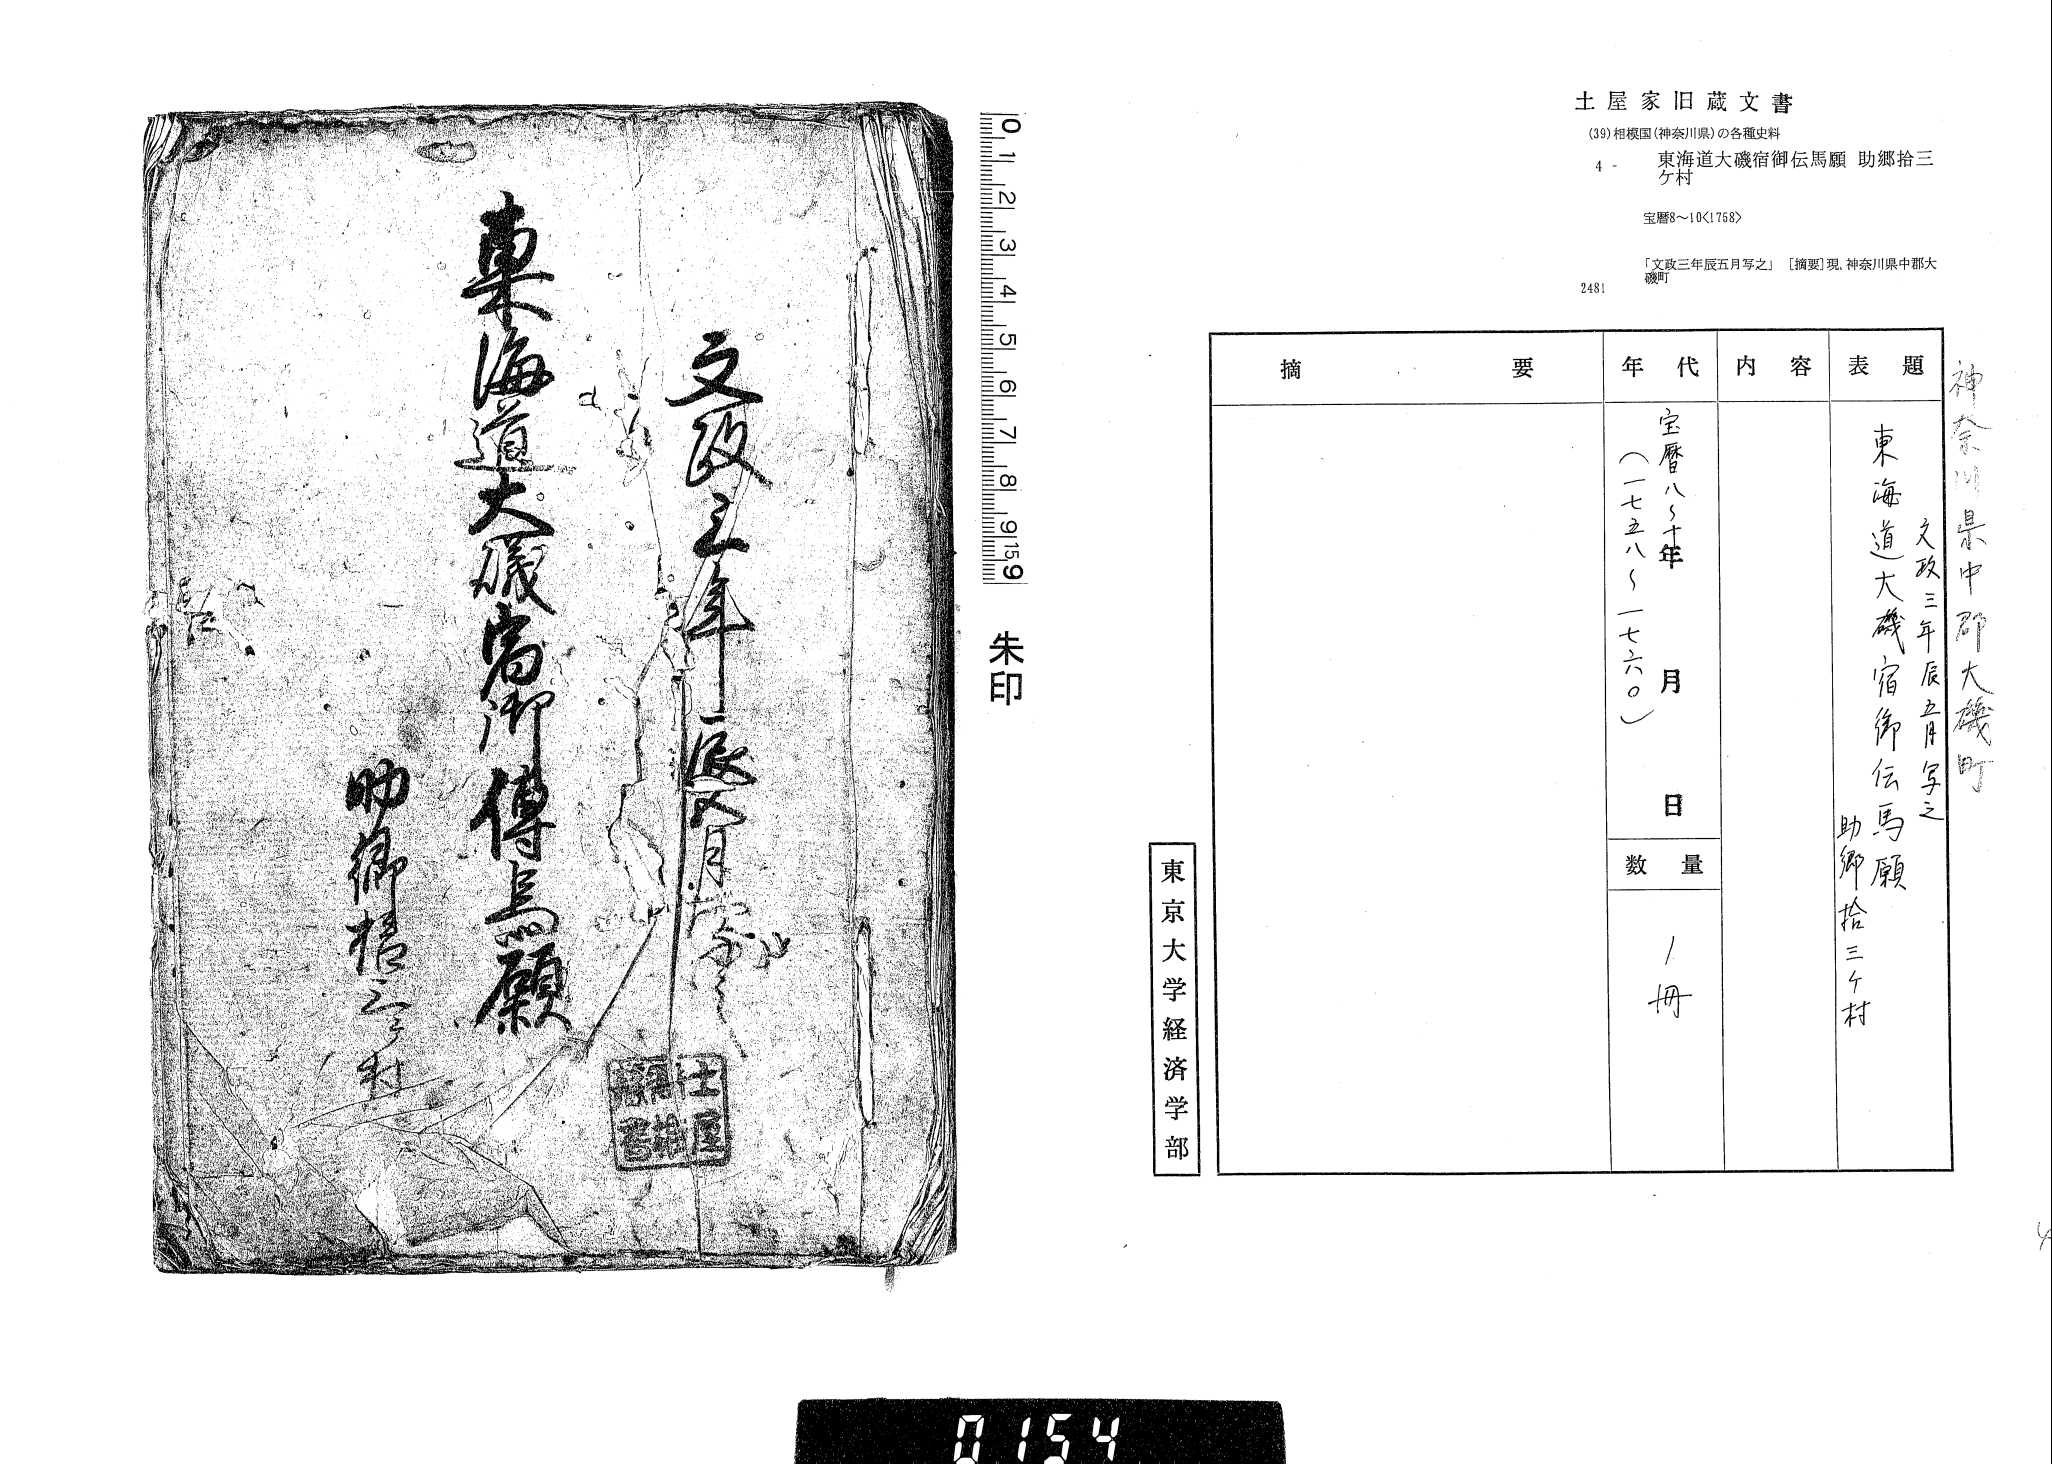 土屋家旧蔵文書
(39)相模国(神奈川県)の各種史料
4 - 東海道大磯宿御伝馬願 助郷拾三
ケ村
宝暦8～10<1758>
「文政三年辰五月写之」 [摘要]現、神奈川県中郡大
磯町
2481
神奈川県中郡大磯町
表題
文政三年辰五月写之
東海道大磯宿御伝馬願
助郷拾三ヶ村
内容
年代
宝暦八～十年
(一七五八～一七六〇)
月
日
数量
1冊
摘要
東京大学経済学部
0 1 2 3 4 5 6 7 8 9 15 9
朱印
文政三年辰五月写之
東海道大磯宿御傳馬願
助郷拾三ヶ村
土屋
0154